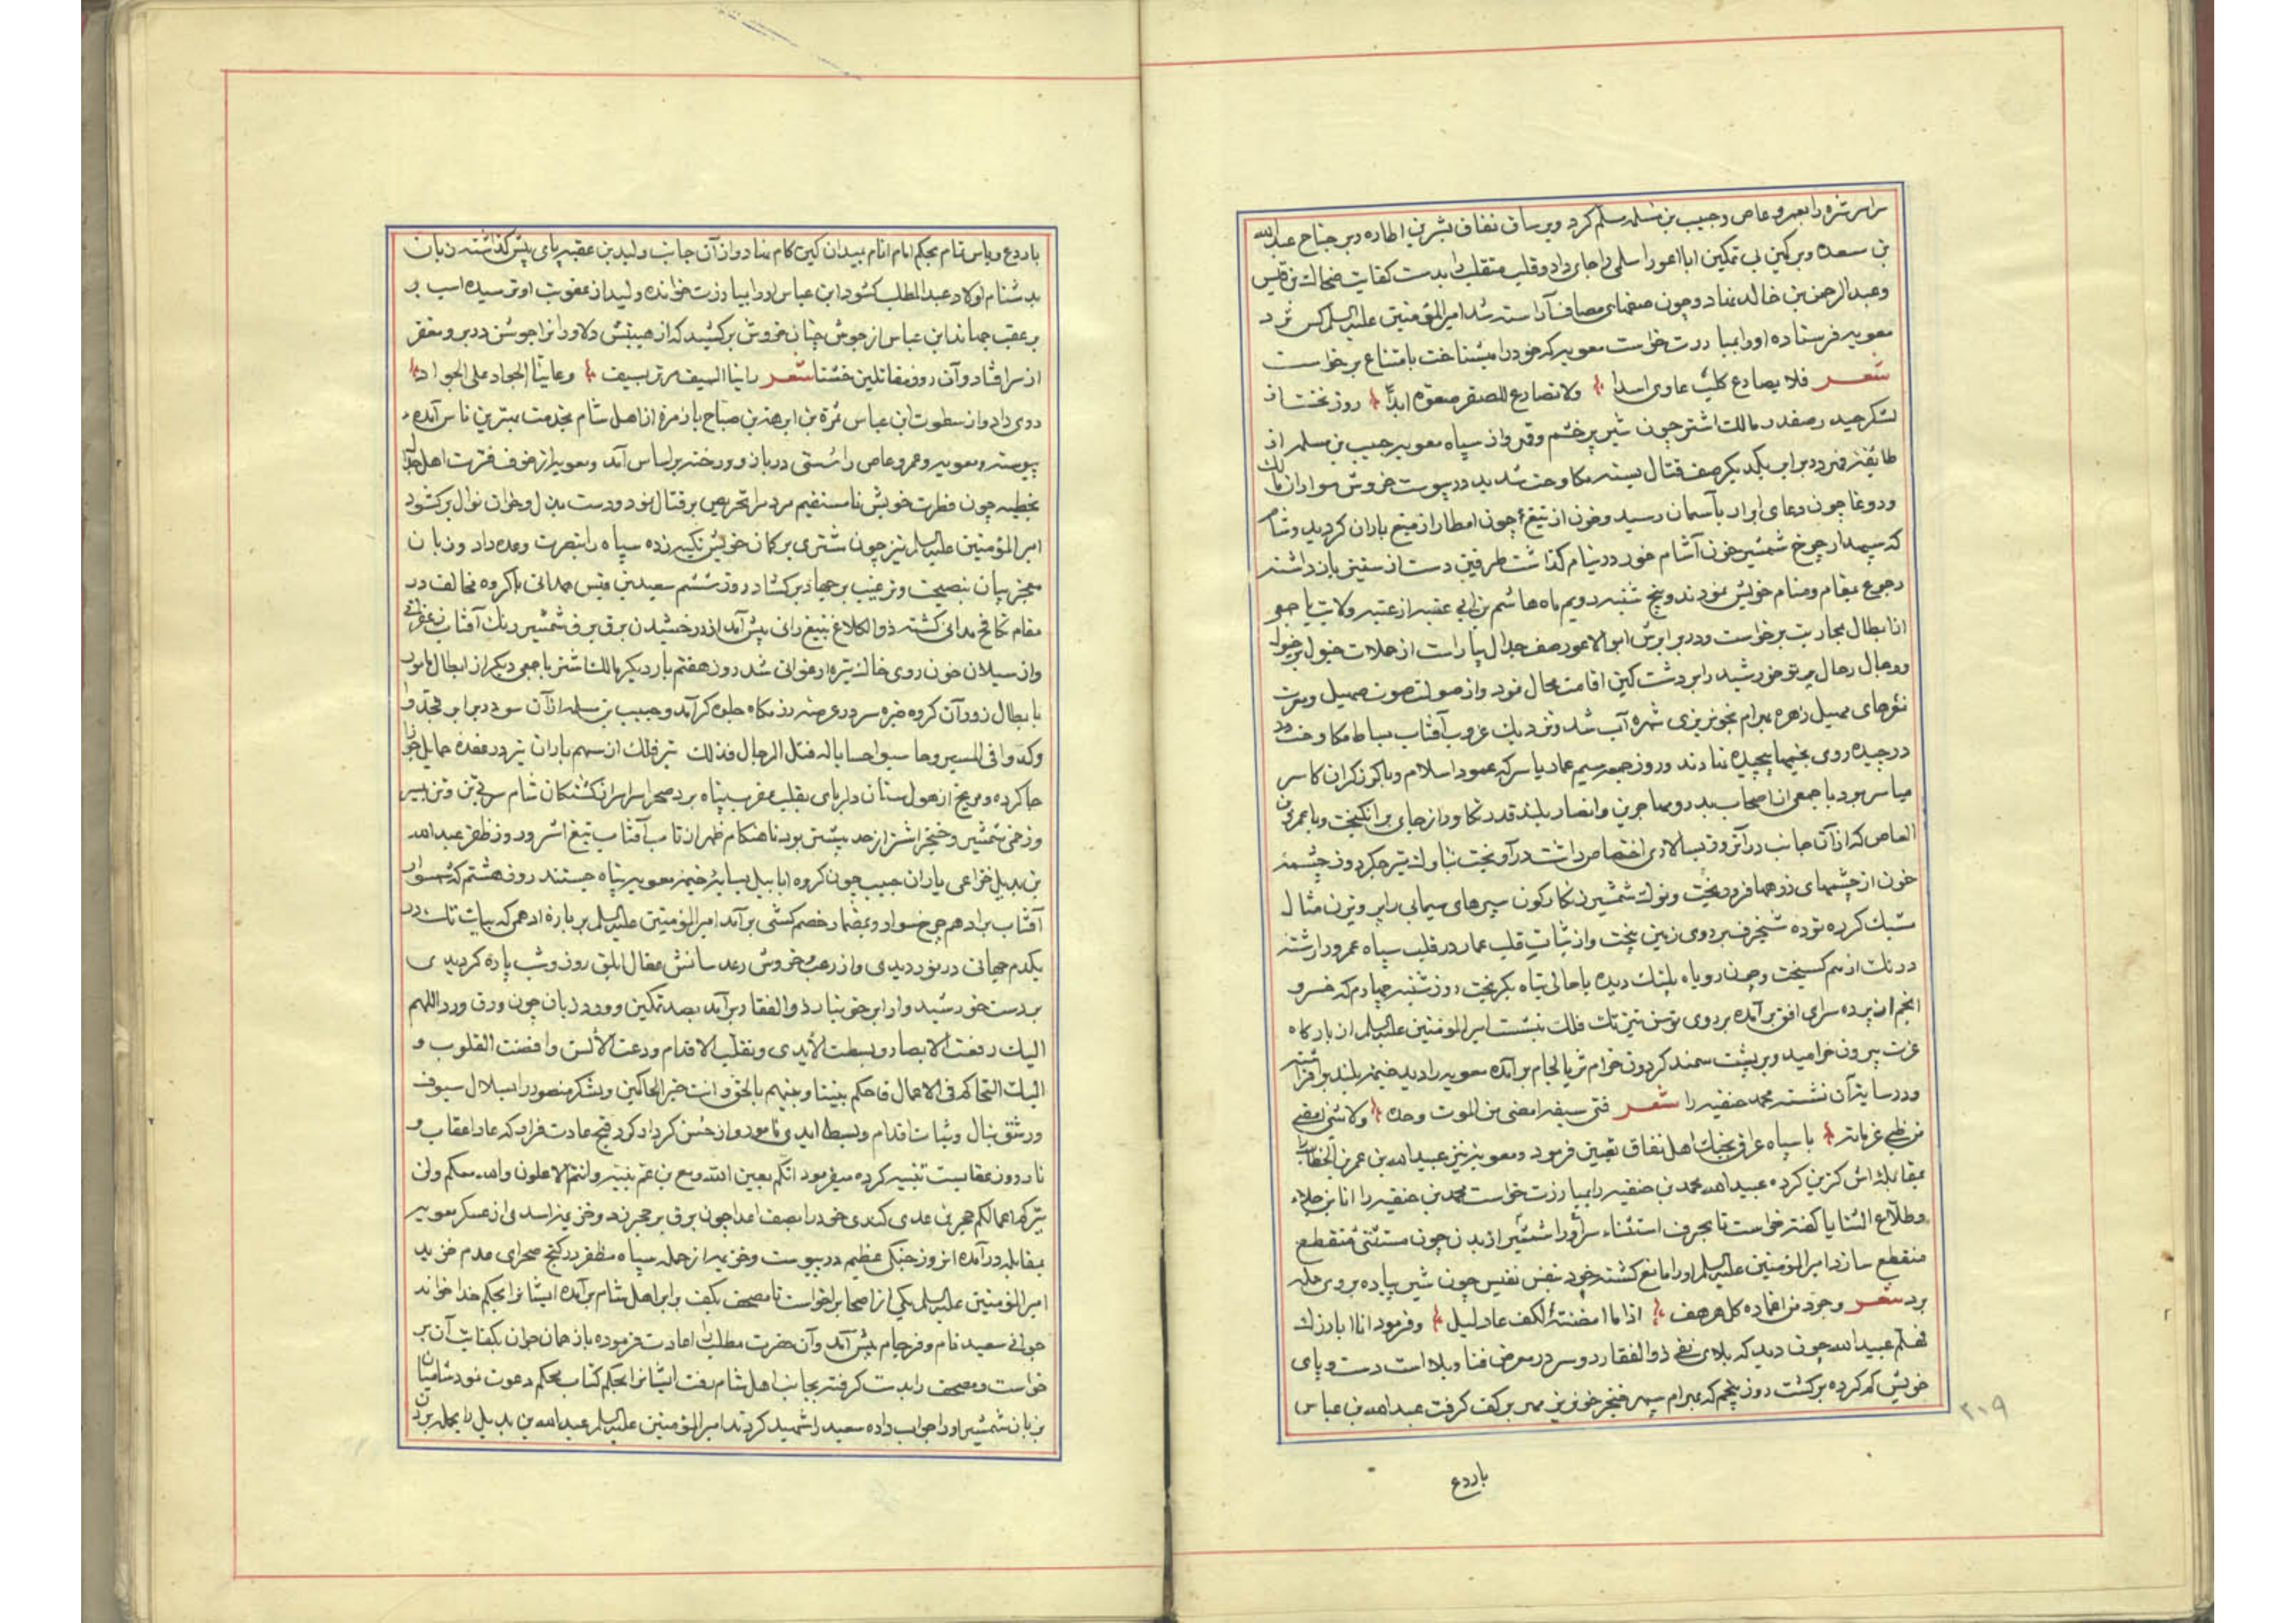 بن سعده و بر كمين بی تمكين ابا اعور اسلمی را جای داد و قلب متقلب را بدست كفايت ضحاك بن قيس
و عبد الرحمن بن خالد نهاد و چون صفهای مصاف آراسته شد امير المؤمنين عليه السلم كس نزد
معويه فرستاده او را بمبارزت خواست معويه كه خود را ميشناخت بامتناع برخواست
شعر فلا يصارع كلب عاوى اسدا ولا تصارع للصقر صعوة ابدا روز نخست از
لشكر حيدر صفدر مالك اشتر چون شير پر خشم و قهر و از سپاه معويه حبيب بن مسلمه از
طائفه در برابر يكديگر صف قتال بسته مكاوحت شديد در پيوست خروش سواران
و دوغا چون دعای ابرار بآسمان رسيد و خون از تيغ چون امطار از ميغ باران گرديد و شام
كه سپهدار چرخ شمشير خون آشام خور در نيام گذاشت طرفين دست از ستيز باز داشته
رجوع بمقام و منام خويش نمودند و پنج شنبه دويم ماه هاشم بن ابی عتبه از عتبه ولايت با جمعی
از ابطال بمحاربت برخواست و در برابرش ابو الاعور صف جدال بياراست از حملات خيول
و رجال رحال پرتو خورشيد را بر دشت كين اقامت محال نمود و از صولت صوت صهيل و
نعرهای زهره بهرام بخونريزی شهره آب شد و نزديك غروب آفتاب بساط مكاوحت
در چيده روی بخيمها پيچيده نهادند و روز جمعه سيم عمار ياسر كه عمود اسلام و
مياسر بود با جمعی از اصحاب بدر و مهاجرين و انصار بلند قدر تكاور از جای برانگيخت و با عمرو بن
العاص كه از آن جانب در آنروز بسالاری اختصاص داشت در آويخت بناوك تير جگر دوز چشمه
خون از چشمهای زرهها فرو ريخت و بنوك شمشير زنگار گون سپرهای سيمابی را پرويزن مثال
مشبك كرده توده شنجرف بر روی زمين بيخت و از ثبات قلب عمار در قلب سپاه عمرو رشته
درنگ از هم گسيخت و چون روباه پلنگ ديده با حالی تباه بگريخت روز شنبه چهارم كه خسرو
انجم از پرده سرای افق برآمده بر روی توسن تيز تك فلك بنشست امير المؤمنين عليه السلم از بارگاه
عزت بيرون خراميد و بر پشت سمند گردون خرام ثريا لجام برآمده معويه را ديد خيمه بلند برافراشته
و در سايه آن نشسته محمد حنفيه را شعر فتى سيفه امضى من الموت وحده ولا شئ امضى
من ظبى عزماته با سپاه عراق بجنگ اهل نفاق تعيين فرمود و معويه نيز عبيد الله بن عمر بن الخطاب
بمقابله اش گزين كرده عبيد الله محمد بن حنفيه را بمبارزت خواست محمد بن حنفيه را انا بن جلاء
وطلاع الثنايا گفته خواست تا بحرف استثناء سر او را شمشير از بدن چون مستثنى منقطع
منقطع سازد امير المؤمنين عليه السلم او را مانع گشته خود بنفس نفيس چون شير پياده بر وی حمله
برد شعر وجرد من اغماده كل مرهف اذا ما انتضته الكف عاد ليل و فرمود انا ابارزك
فهلم عبيد الله چون ديد كه بلای نفی ذو الفقار دو سر در معرض فنا و بلا است دست و پای
خويش گم كرده برگشت روز پنجم كه بهرام سپهر خنجر خونريز مهر بر كف گرفت عبد الله بن عباس
۲۰۹
با ردع
با ردع و باس تمام بحكم امام انام بميدان كين گام نهاد و از آن جانب وليد بن عقبه پای پيش گذاشته زبان
بدشنام اولاد عبد المطلب گشود ابن عباس او را بمبارزت خوانده وليد از عقوبت او ترسيده اسب بر
بر عقب جهاند ابن عباس از جوش چنان خروش بركشيد كه از هيبتش دلاورانرا جوشن در بر و مغفر
از سر افتاد و آن روز مقاتلين خشتا شعر راينا السيف مرتد بسيف وعاينا الجواد على الجواد
روی داد و از سطوت ابن عباس مرة بن ابرهة بن صباح با زمرۀ از اهل شام بخدمت بهترين ناس آمده
پيوسته و معويه و عمرو عاص را سستی در بار و رخنه بر اساس آمد و معويه از خوف فترت اهل
بخطبه چون فطرت خويش نا مستقيم مردم را تحريص بر قتال نمود و دست ببذل و خوان نوال برگشود
امير المؤمنين عليه السلم نيز چون مشتری بر كمان خويش تكيه زده سپاه را بنصرت وعده داد و زبان
معجز بيان بنصيحت و ترغيب بر جهاد برگشاد روز ششم سعيد بن قيس همدانی با گروه مخالف در
مقام تكافح ميدانی گشته ذو الكلاع بتيغ رانی پيش آمد از درخشيدن برق برف شمشير رنگ آفتاب زعفرانی
و از سيلان خون روی خاك تيره ارغوانی شد روز هفتم بار ديگر مالك اشتر با جمعی ديگر از ابطال نامور
با بطال زور آن گروه خيره سر در عرصه رزمگاه جلوه گر آمد و حبيب بن سلمه از آن سو در برابر
جا كرده و مريخ از هول سنان دلربای بقلب عقرب پناه برد صحرا سراسر از كشتگان شام
و زخمی شمشير و خنجر اشتر از حد بيشتر بود تا هنگام ظهر از تاب آفتاب تيغ اشتر و روز ظفر عبد الله
بن بديل خزاعی ياران حبيب چون گروه ابابيل بسايه خيمه معويه پناه جستند روز هشتم كه شهسوار
آفتاب بر ادهم چرخ سوار و بمضمار خصم كشی برآمد امير المؤمنين عليه السلم بر بارۀ ادهمی كه بيات تك در
يكدم جهانی در نورديدی و از رعب خروش رعد سانش مقال ابلق روز و شب پاره گرديدی
بر دست خورشيد وار ابر حق بنياد ذو الفقار برآمد بصد تمكين و ورد زبان چون ورق ورد اللهم
اليك رفعت الابصار وبسطت الأيدى ونقلت الاقدام ودعت الألسن وافضت القلوب و
اليك التحاكم فى الاعمال فاحكم بيننا وبينهم بالحق وانت خير الحاكمين و لشكر منصور را بسلال سيوف
و رشق نبال و ثبات اقدام و بسط ايدی نامور و از حسن كردار كرد قبح عادت فرار كه عار اعقاب و
نار دون عقابست تنبيه كرده ميفرمود انكم بعين الله ومع بن عم نبيه وانتم الاعلون والله معكم ولن
يتركم اعمالكم حجر بن عدی كندی خود را بصف اعدا چون برق بر حجر زد و خزيمه اسدی از عسكر معويه
بمقابله درآمده انروز جنگی عظيم در پيوست و خزيمه از حمله سپاه مظفر در كنج صحرای عدم خزيد
امير المؤمنين عليه السلم يكی از اصحابرا خواست تا مصحف بكف برابر اهل شام برآمده ايشانرا بحكم خدا خواند
جوانی سعيد نام و فرجام پيش آمد و آن حضرت مطلب را اعادت فرموده باز همان جوان بكفايت آن بر
خواست و مصحف را بدست گرفته بجانب اهل شام رفت ايشانرا بحكم كتاب محكم دعوت نمود شاميان
بزبان شمشير او را جواب داده سعيد را شهيد كردند امير المؤمنين عليه السلم عبد الله بن بديل را بحمله بردن